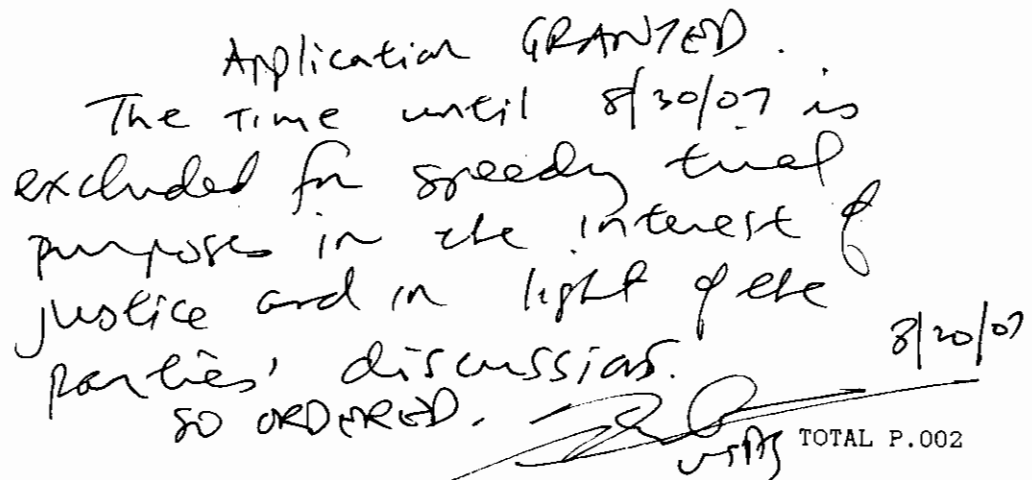 Application GRANTED.
The time until 8/30/07 is
excluded for speedy trial
purposes in the interest of
justice and in light of the
parties' discussions.
8/20/07
SO ORDERED.
USDJ
TOTAL P.002